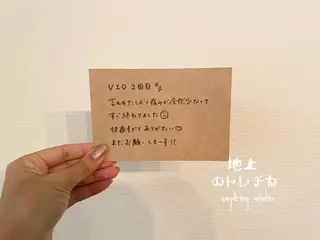 VIO 2回目
言われたとおり痛みが全然少なくて
すぐ終わりました
快適すぎてありがたい♡
またお願いしまーす!!
地上
のトレチカ